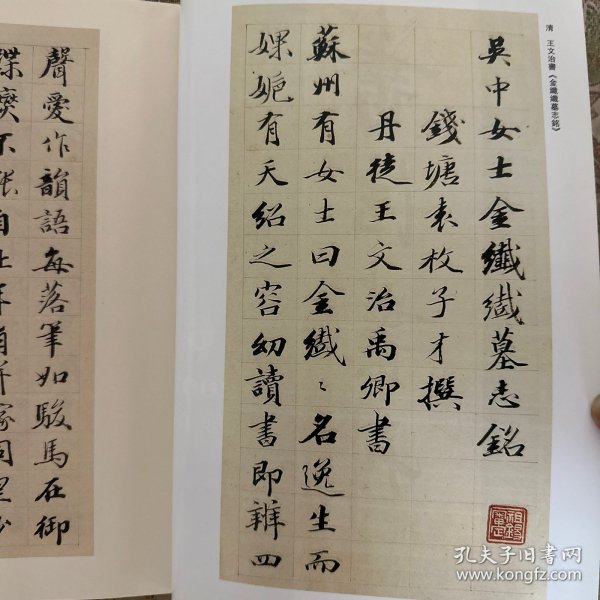 清 王文治書《金纖纖墓志銘》
吳中女士金纖纖墓志銘
錢塘袁枚子才撰
丹徒王文治禹卿書
蘇州有女士曰金纖〻名逸生而
婐㛂有天紹之容幼讀書即辨四
聲愛作韻語每落筆如駿馬在御
孔夫子旧书网
kongfz.com